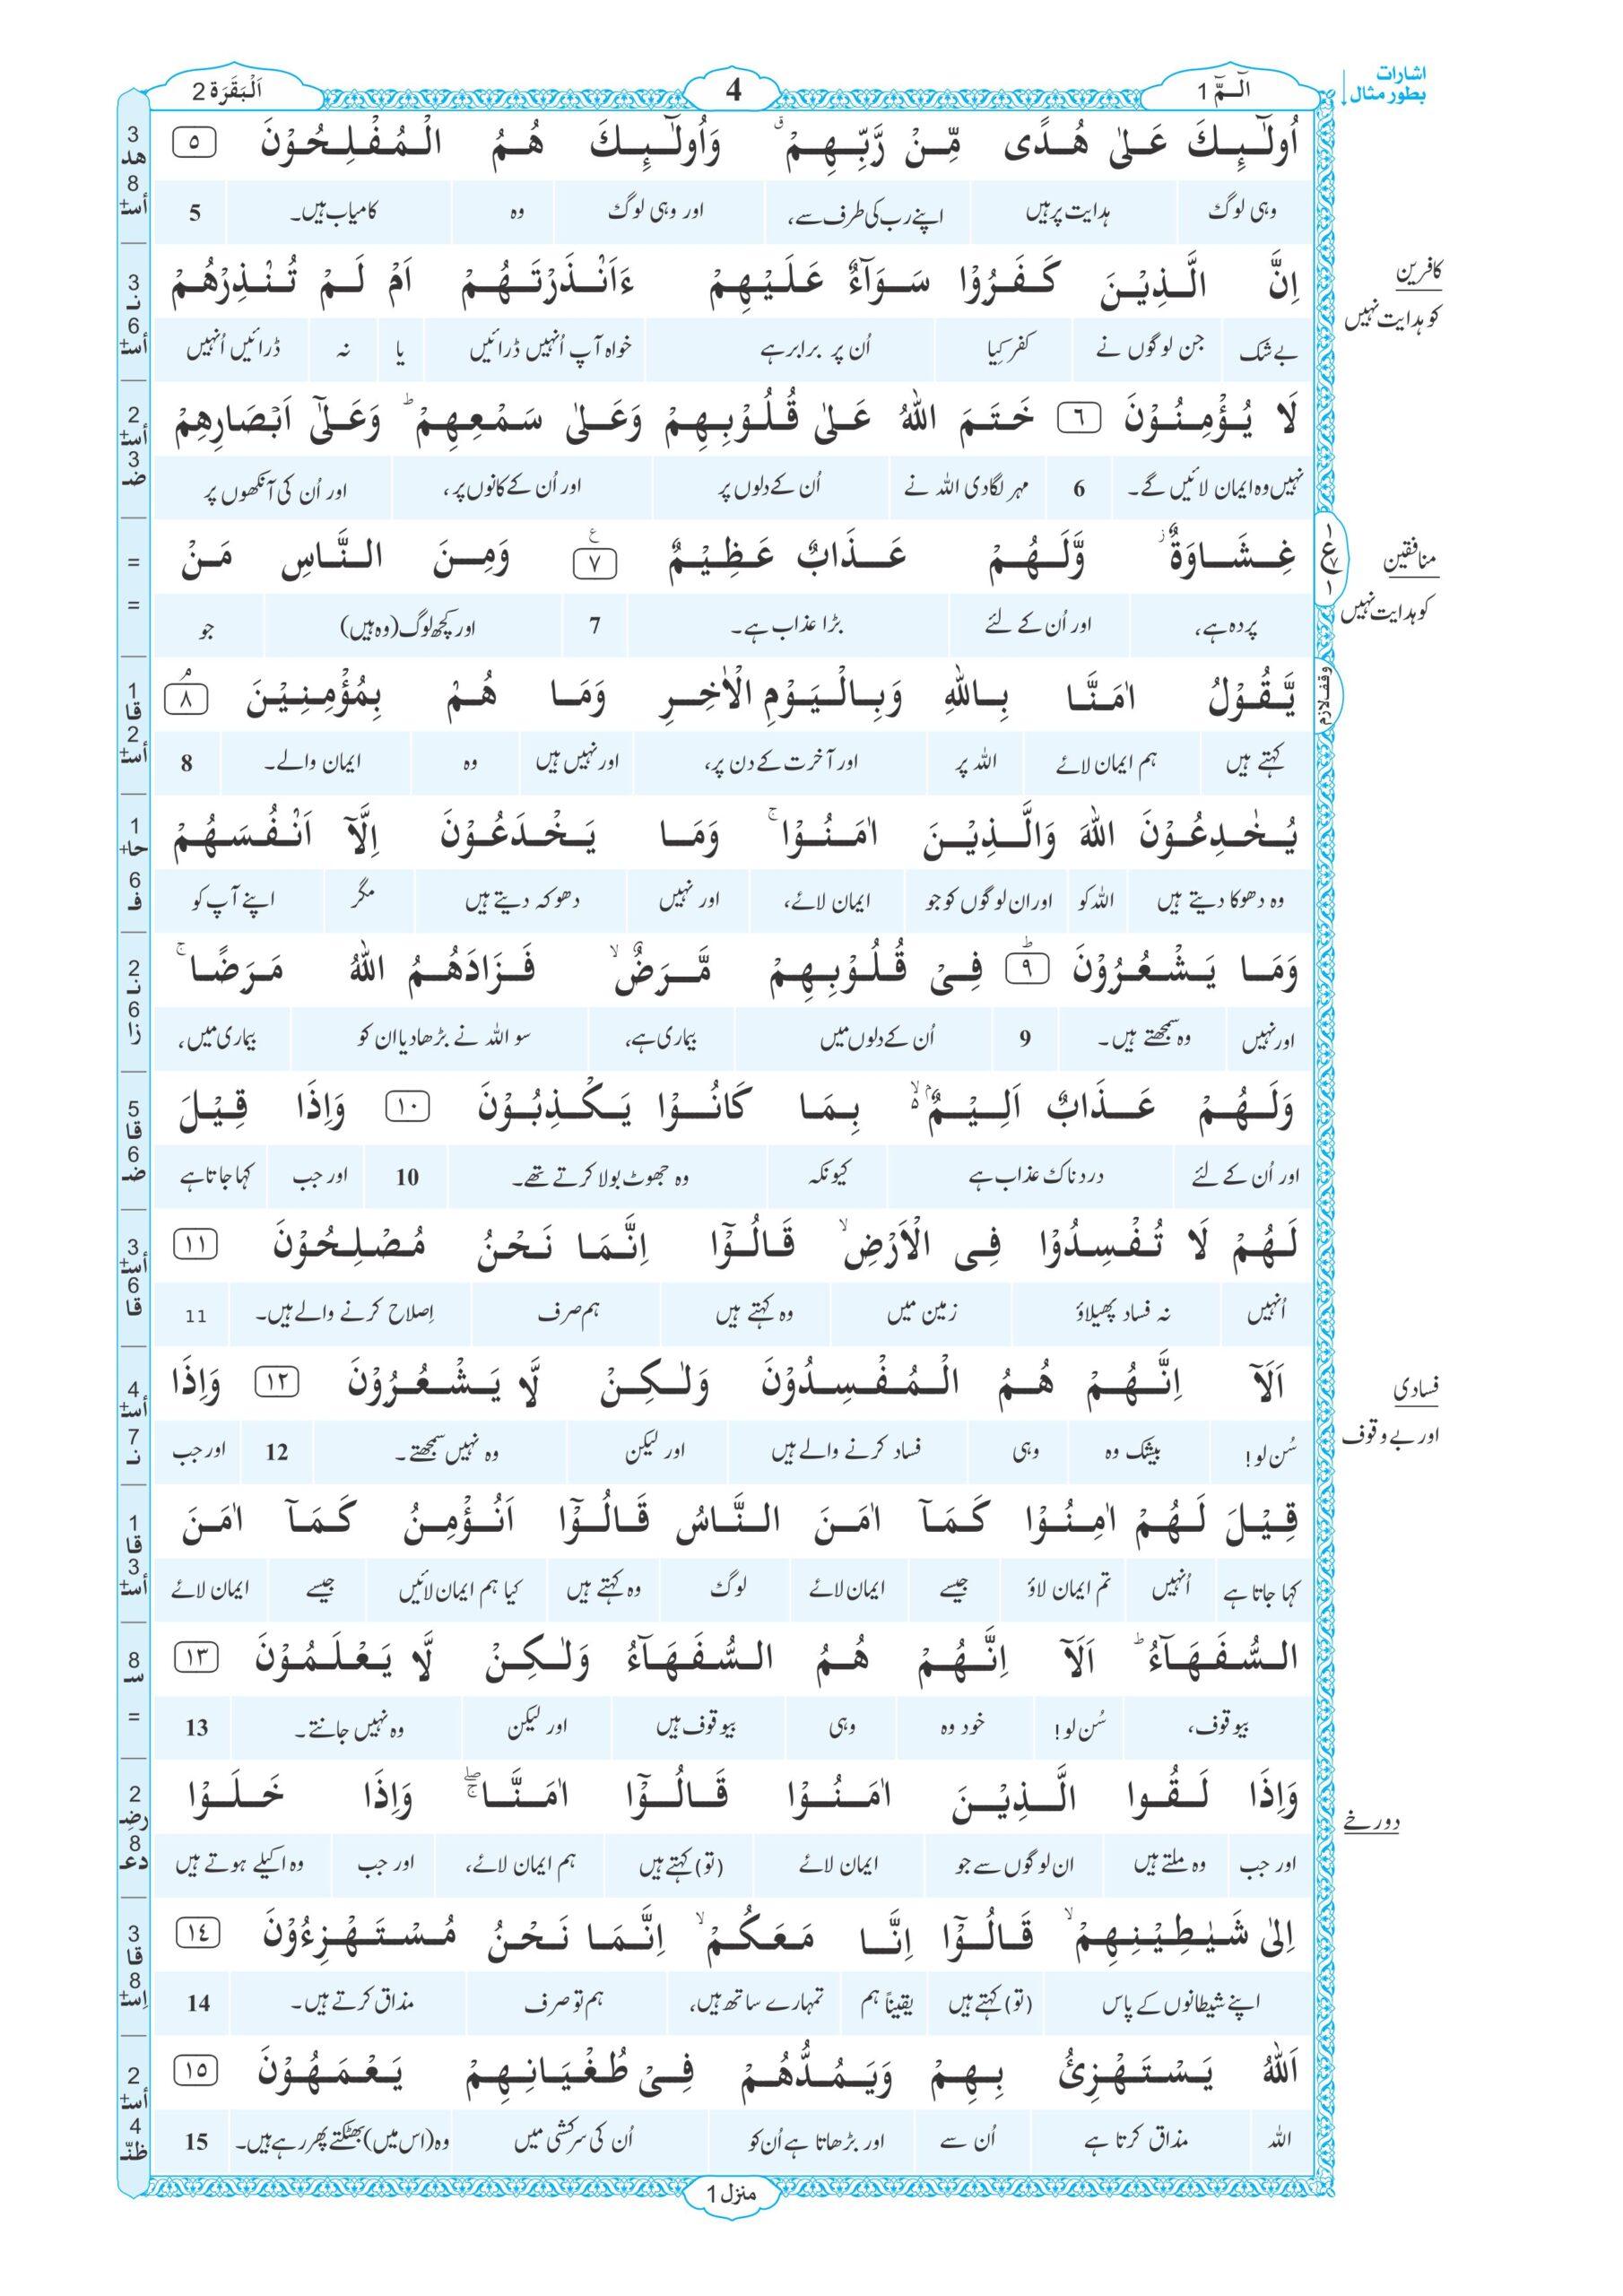 اشارات
بطور مثال
الٓـمّٓ 1
4
اَلْبَقَرَة 2
اُولٰٓئِكَ عَلٰى هُدًى مِّنْ رَّبِّهِمْ ۗ وَاُولٰٓئِكَ هُمُ الْمُفْلِحُوْنَ ٥
وہی لوگ ہدایت پر ہیں اپنے رب کی طرف سے، اور وہی لوگ وہ کامیاب ہیں۔ 5
کافرین
کو ہدایت نہیں
اِنَّ الَّذِيْنَ كَفَرُوْا سَوَآءٌ عَلَيْهِمْ ءَاَنْذَرْتَهُمْ اَمْ لَمْ تُنْذِرْهُمْ
بے شک جن لوگوں نے کفر کیا اُن پر برابر ہے خواہ آپ اُنہیں ڈرائیں یا نہ ڈرائیں اُنہیں
لَا يُؤْمِنُوْنَ ٦ خَتَمَ اللّٰهُ عَلٰى قُلُوْبِهِمْ وَعَلٰى سَمْعِهِمْ ؕ وَعَلٰٓى اَبْصَارِهِمْ
نہیں وہ ایمان لائیں گے۔ 6 مہر لگادی اللہ نے اُن کے دلوں پر اور اُن کے کانوں پر، اور اُن کی آنکھوں پر
منافقین
کو ہدایت نہیں
غِشَاوَةٌ ؗ وَّلَهُمْ عَذَابٌ عَظِيْمٌ ٧ وَمِنَ النَّاسِ مَنْ
پردہ ہے، اور اُن کے لئے بڑا عذاب ہے۔ 7 اور کچھ لوگ (وہ ہیں) جو
وقف لازم
يَّقُوْلُ اٰمَنَّا بِاللّٰهِ وَبِالْيَوْمِ الْاٰخِرِ وَمَا هُمْ بِمُؤْمِنِيْنَ ٨
کہتے ہیں ہم ایمان لائے اللہ پر اور آخرت کے دن پر، اور نہیں ہیں وہ ایمان والے۔ 8
يُخٰدِعُوْنَ اللّٰهَ وَالَّذِيْنَ اٰمَنُوْا ۚ وَمَا يَخْدَعُوْنَ اِلَّآ اَنْفُسَهُمْ
وہ دھوکا دیتے ہیں اللہ کو اور ان لوگوں کو جو ایمان لائے، اور نہیں دھوکہ دیتے ہیں مگر اپنے آپ کو
وَمَا يَشْعُرُوْنَ ؕ ٩ فِىْ قُلُوْبِهِمْ مَّرَضٌ ۙ فَزَادَهُمُ اللّٰهُ مَرَضًا ۚ
اور نہیں وہ سمجھتے ہیں۔ 9 اُن کے دلوں میں بیماری ہے، سو اللہ نے بڑھا دیا ان کو بیماری میں،
وَلَهُمْ عَذَابٌ اَلِيْمٌ ۙ بِمَا كَانُوْا يَكْذِبُوْنَ ١٠ وَاِذَا قِيْلَ
اور اُن کے لئے دردناک عذاب ہے کیونکہ وہ جھوٹ بولا کرتے تھے۔ 10 اور جب کہا جاتا ہے
لَهُمْ لَا تُفْسِدُوْا فِى الْاَرْضِ ۙ قَالُوْٓا اِنَّمَا نَحْنُ مُصْلِحُوْنَ ١١
اُنہیں نہ فساد پھیلاؤ زمین میں وہ کہتے ہیں ہم صرف اِصلاح کرنے والے ہیں۔ 11
فسادی
اور بے وقوف
اَلَآ اِنَّهُمْ هُمُ الْمُفْسِدُوْنَ وَلٰكِنْ لَّا يَشْعُرُوْنَ ١٢ وَاِذَا
سُن لو! بیشک وہ وہی فساد کرنے والے ہیں اور لیکن وہ نہیں سمجھتے۔ 12 اور جب
قِيْلَ لَهُمْ اٰمِنُوْا كَمَآ اٰمَنَ النَّاسُ قَالُوْٓا اَنُؤْمِنُ كَمَآ اٰمَنَ
کہا جاتا ہے اُنہیں تم ایمان لاؤ جیسے ایمان لائے لوگ وہ کہتے ہیں کیا ہم ایمان لائیں جیسے ایمان لائے
السُّفَهَآءُ ؕ اَلَآ اِنَّهُمْ هُمُ السُّفَهَآءُ وَلٰكِنْ لَّا يَعْلَمُوْنَ ١٣
بیوقوف، سُن لو! خود وہ وہی بیوقوف ہیں اور لیکن وہ نہیں جانتے۔ 13
دورخے
وَاِذَا لَقُوا الَّذِيْنَ اٰمَنُوْا قَالُوْٓا اٰمَنَّا ۖۚ وَاِذَا خَلَوْا
اور جب وہ ملتے ہیں ان لوگوں سے جو ایمان لائے (تو) کہتے ہیں ہم ایمان لائے، اور جب وہ اکیلے ہوتے ہیں
اِلٰى شَيٰطِيْنِهِمْ ۙ قَالُوْٓا اِنَّا مَعَكُمْ ۙ اِنَّمَا نَحْنُ مُسْتَهْزِءُوْنَ ١٤
اپنے شیطانوں کے پاس (تو) کہتے ہیں یقیناً ہم تمہارے ساتھ ہیں، ہم تو صرف مذاق کرتے ہیں۔ 14
اَللّٰهُ يَسْتَهْزِئُ بِهِمْ وَيَمُدُّهُمْ فِىْ طُغْيَانِهِمْ يَعْمَهُوْنَ ١٥
اللہ مذاق کرتا ہے اُن سے اور بڑھاتا ہے اُن کو اُن کی سرکشی میں وہ (اس میں) بھٹکتے پھر رہے ہیں۔ 15
منزل 1